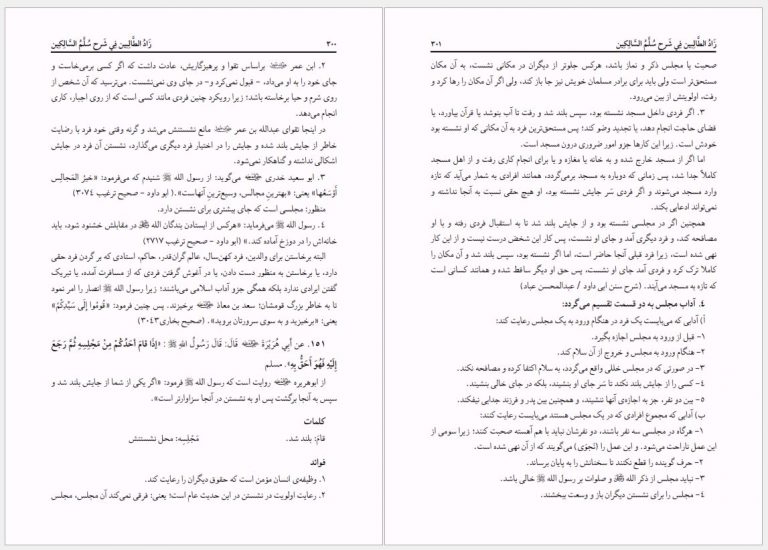 زَادُ الطَّالِبِين فِي شَرحِ سُلَّمُ السَّالِكِين
۳۰۰
۲. ابن عمر براساس تقوا و پرهیزگاریش، عادت داشت که اگر کسی برمی‌خاست و
جای خود را به او می‌داد، – قبول نمی‌کرد و– در جای وی نمی‌نشست. می‌ترسید که آن شخص از
روی شرم و حیا برخاسته باشد؛ زیرا رویکرد چنین فردی مانند کسی است که از روی اجبار، کاری
انجام می‌دهد.
در اینجا تقوای عبدالله بن عمر مانع نشستنش می‌شد و گرنه وقتی خود فرد با رضایت
خاطر از جایش بلند شده و جایش را در اختیار فرد دیگری می‌گذارد، نشستن آن فرد در جایش
اشکالی نداشته و گناهکار نمی‌شود.
۳. ابو سعید خدری می‌گوید: از رسول الله ﷺ شنیدم که می‌فرمود: «خَیرُ المَجالِسِ
أَوْسَعُها» یعنی: «بهترینِ مجالس، وسیع‌ترینِ آنهاست».( ابو داود – صحیح ترغیب ۳۰۷۴)
منظور: مجلسی است که جای بیشتری برای نشستن دارد.
۴. رسول الله ﷺ می‌فرماید: «هرکس از ایستادن بندگان الله در مقابلش خشنود شود، باید
خانه‌اش را در دوزخ آماده کند.» (ابو داود – صحیح ترغیب ۲۷۱۷)
البته برخاستن برای والدین، فرد کهن‌سال، عالم گران‌قدر، حاکم، استادی که بر گردن فرد حقی
دارد، یا برخاستن به منظور دست دادن، یا در آغوش گرفتن فردی که از مسافرت آمده، یا تبریک
گفتن ایرادی ندارد بلکه همگی جزو آداب اسلامی می‌باشند؛ زیرا رسول الله ﷺ انصار را امر نمود
تا به خاطر بزرگ قومشان؛ سعد بن معاذ برخیزند. پس چنین فرمود: «قُومُوا إِلَى سَيِّدِكُمْ»
یعنی: «برخیزید و به سوی سرورتان بروید». (صحیح بخاری۳۰۴۳)
۱۵۱. عن أبِي هُرَيْرَةَ قَالَ: قَالَ رَسُولُ اللهِ ﷺ : «إِذَا قَامَ أَحَدُكُمْ مِنْ مَجْلِسِهِ ثُمَّ رَجَعَ
إِلَيْهِ فَهُوَ أَحَقُّ بِهِ». مسلم
از ابوهریره روایت است که رسول الله ﷺ فرمود: «اگر یکی از شما از جایش بلند شد و
سپس به آنجا برگشت پس او به نشستن در آنجا سزاوارتر است».
کلمات
قامَ: بلند شد. مَجْلِسِه: محل نشستنش
فوائد
۱. وظیفه‌ی انسان مؤمن است که حقوق دیگران را رعایت کند.
۲. رعایت اولویت در نشستن در این حدیث عام است؛ یعنی: فرقی نمی‌کند آن مجلس، مجلس
زَادُ الطَّالِبِين فِي شَرحِ سُلَّمُ السَّالِكِين
۳۰۱
صحبت یا مجلس ذکر و نماز باشد، هرکس جلوتر از دیگران در مکانی نشست، به آن مکان
مستحق‌تر است ولی باید برای برادر مسلمان خویش نیز جا باز کند، ولی اگر آن مکان را رها کرد و
رفت، اولویتش از بین می‌رود.
۳. اگر فردی داخل مسجد نشسته بود، سپس بلند شد و رفت تا آب بنوشد یا قرآن بیاورد، یا
قضای حاجت انجام دهد، یا تجدید وضو کند؛ پس مستحق‌ترین فرد به آن مکانی که او نشسته بود
خودش است. زیرا این کارها جزو امور ضروری درون مسجد است.
اما اگر از مسجد خارج شده و به خانه یا مغازه و یا برای انجام کاری رفت و از اهل مسجد
کاملاً جدا شد، پس زمانی که دوباره به مسجد برمی‌گردد، همانند افرادی به شمار می‌آید که تازه
وارد مسجد می‌شوند و اگر فردی سَر جایش نشسته بود، او هیچ حقی نسبت به آنجا نداشته و
نمی‌تواند ادعایی بکند.
همچنین اگر در مجلسی نشسته بود و از جایش بلند شد تا به استقبال فردی رفته و با او
مصافحه کند، و فرد دیگری آمد و جای او نشست، پس کار این شخص درست نیست و از این کار
نهی شده است، زیرا فرد قبلی آنجا حاضر است، اما اگر نشسته بود، سپس بلند شد و آن مکان را
کاملا ترک کرد و فردی آمد جای او نشست، پس حق او دیگر ساقط شده و همانند کسانی است
که تازه به مسجد می‌آیند. (شرح سنن ابی داود / عبدالمحسن عباد)
۴. آداب مجلس به دو قسمت تقسیم می‌گردد:
أ) آدابی که می‌بایست یک فرد در هنگام ورود به یک مجلس رعایت کند:
۱– قبل از ورود به مجلس اجازه بگیرد.
۲– هنگام ورود به مجلس و خروج از آن سلام کند.
۳– در صورتی که در مجلس خللی واقع می‌گردد، به سلام اکتفا کرده و مصافحه نکند.
۴– کسی را از جایش بلند نکند تا سَر جای او بنشیند، بلکه در جای خالی بنشیند.
۵– بین دو نفر، جز به اجازه‌ی آنها ننشیند، و همچنین بین پدر و فرزند جدایی نیفکند.
ب) آدابی که مجموع افرادی که در یک مجلس هستند می‌بایست رعایت کنند:
۱– هرگاه در مجلسی سه نفر باشند، دو نفرشان نباید با هم آهسته صحبت کنند؛ زیرا سومی از
این عمل ناراحت می‌شود. و این عمل را (نَجْوَی) می‌گویند که از آن نهی شده است.
۲– حرف گوینده را قطع نکنند تا سخنانش را به پایان برساند.
۳– نباید مجلس از ذکر الله و صلوات بر رسول الله ﷺ خالی باشد.
۴– مجلس را برای نشستن دیگران باز و وسعت ببخشند.